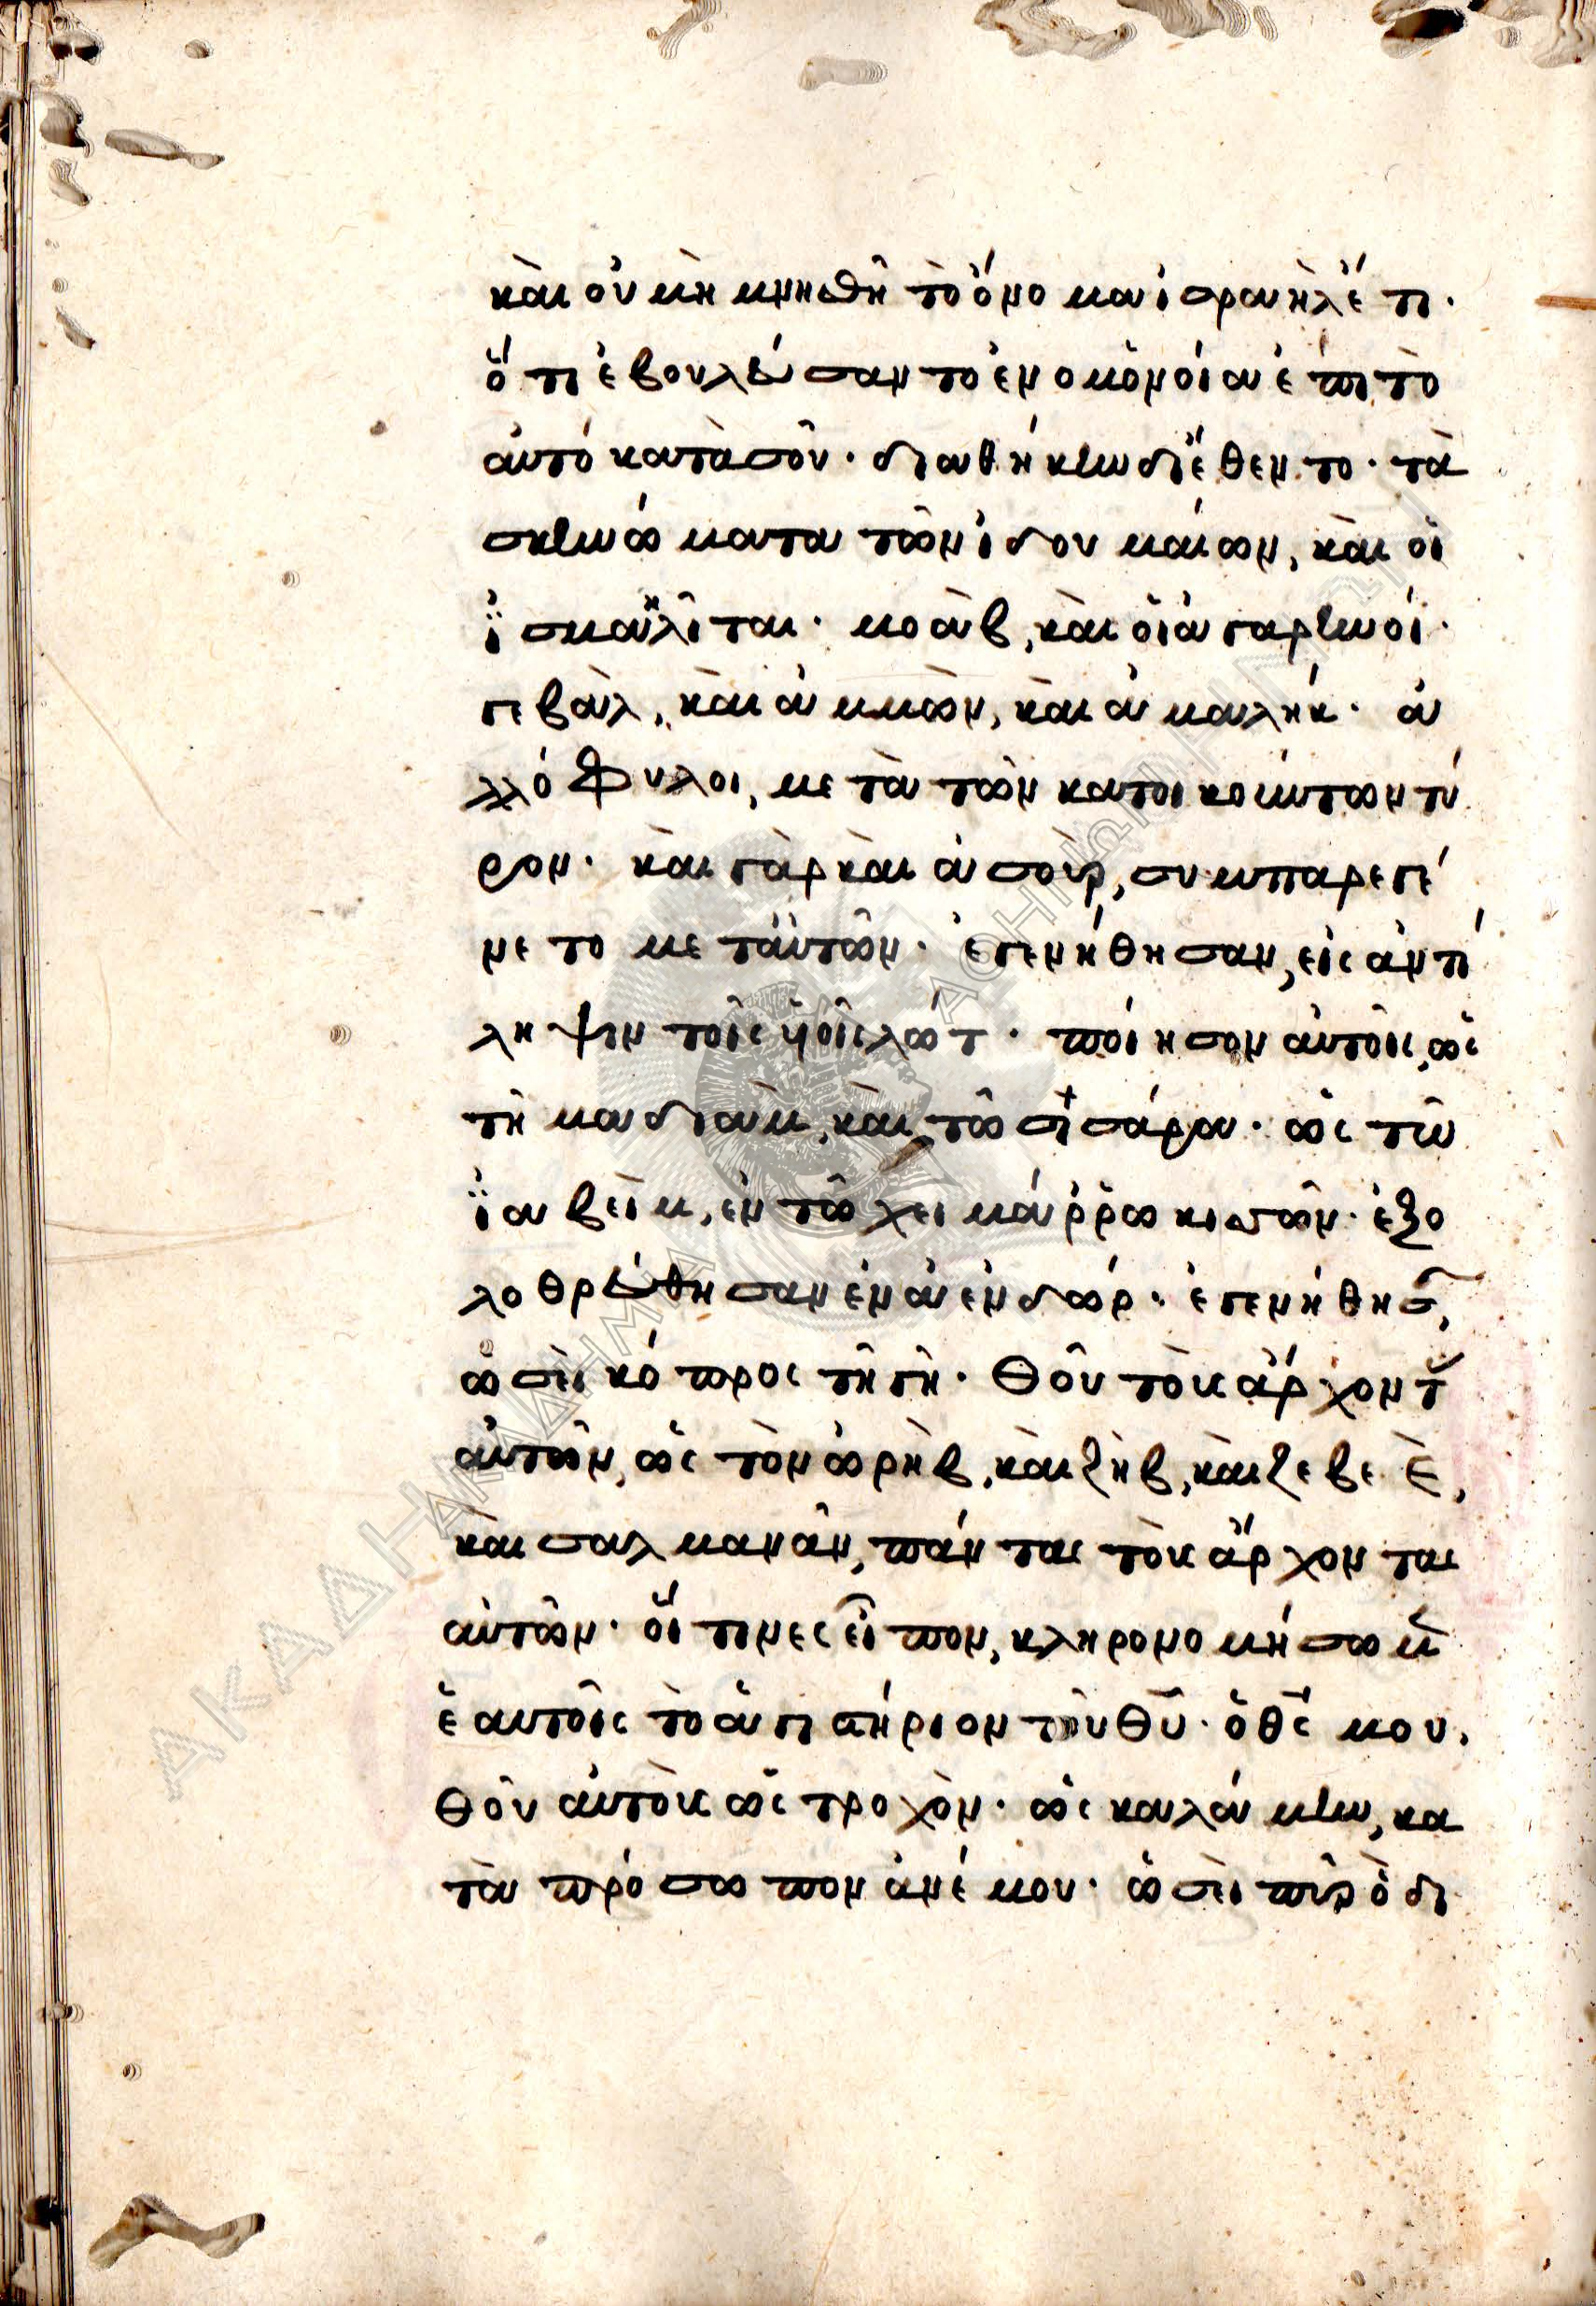 καὶ οὐ μὴ μνησθῆ τὸ ὄνομα ἰσραὴλ ἔτι·
ὅτι ἐβουλεύσαντο ἐν ὁμονοία ἐπιτὸ
αὐτό κατὰ σοῦ· διαθήκην διέθεντο· τὰ
σκηνώματα τῶν ἰδουμαίων, καὶ οἱ
ϊσμαηλῖται· μοὰβ, καὶ οἱ ἀγαρηνοί·
γεβὰλ, καὶ ἀμμὼν, καὶ ἀμαλήκ· ἀ
λλόφυλοι, μετὰ τῶν κατοικούντων τύ
ρον· καὶ γὰρ καὶ ἀσοὺρ, συμπαρεγέ
νετο μετ' αὐτῶν· ἐγενήθησαν, εἰς ἀντί
ληψιν τοῖς υἱοῖς λώτ· ποίησον αὐτοῖς, ὡς
τῆ μαδιὰμ, καὶ τῶ σισάρα· ὡς τῶ
ϊαβεὶμ, ἐν τῶ χειμάρρω κισσῶν· ἐξο
λοθρεύθησαν ἐν ἀενδώρ· ἐγενήθησ,
ὡσεὶ κόπρος τῆ γῆ· θοῦ τοὺς ἄρχοντ
αὐτῶν, ὡς τὸν ὠρὴβ, καὶ ζὴβ, καὶ ζεβεὲ,
καὶ σαλμανᾶν, πάντας τοὺς ἄρχοντας
αὐτῶν· οἵτινες εἶπον, κληρονομήσωμ
ἑαυτοῖς τὸ ἁγιαστήριον τοῦ θῦ· ὁ θς μου,
θοῦ αὐτοὺς ὡς τροχὸν· ὡς καλάμην, κα
τὰ πρόσωπον ἀνέμου· ὡσεὶ πῦρ ὃ δι
ΑΚΑΔΗΜΙΑ ΑΘΗΝΩΝ